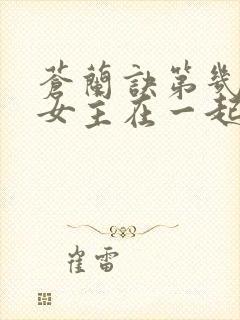 蒼蘭訣第幾
女主在一起
崔雷